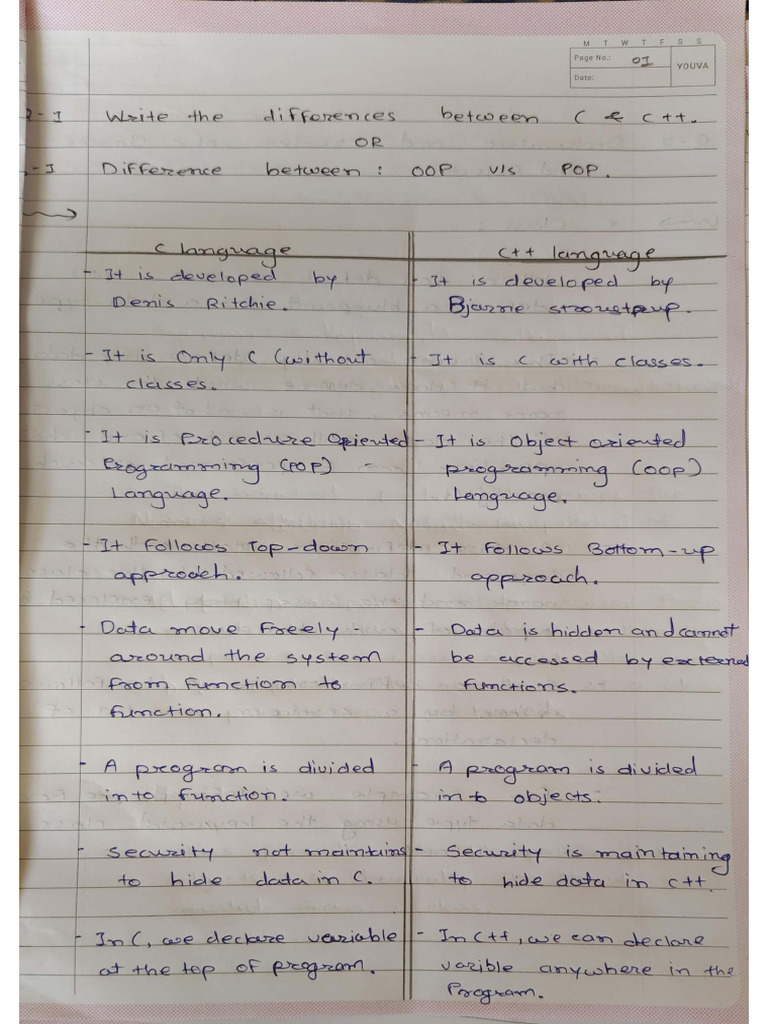 M T W T F S S
Page No.: 01
YOUVA
Date:
Q-1 Write the differences between C & C++.
OR
Q-1 Difference between : OOP v/s POP.
C language
- It is developed by
Denis Ritchie.
- It is Only C (without
classes.
- It is Procedure Oriented
Programming (POP) -
Language.
- It Follows Top-down
approach.
- Data move Freely -
around the system
from Function to
function.
- A program is divided
into function.
- Security not maintains
to hide data in C.
- In C, we declare variable
at the top of program.
C++ language
- It is developed by
Bjarne stroustpup.
- It is C with classes.
- It is Object oriented
programming (OOP)
Language.
- It Follows Bottom-up
approach.
- Data is hidden and cannot
be accessed by external
functions.
- A program is divided
into objects.
- Security is maintaining
to hide data in C++.
- In C++, we can declare
varible anywhere in the
Program.